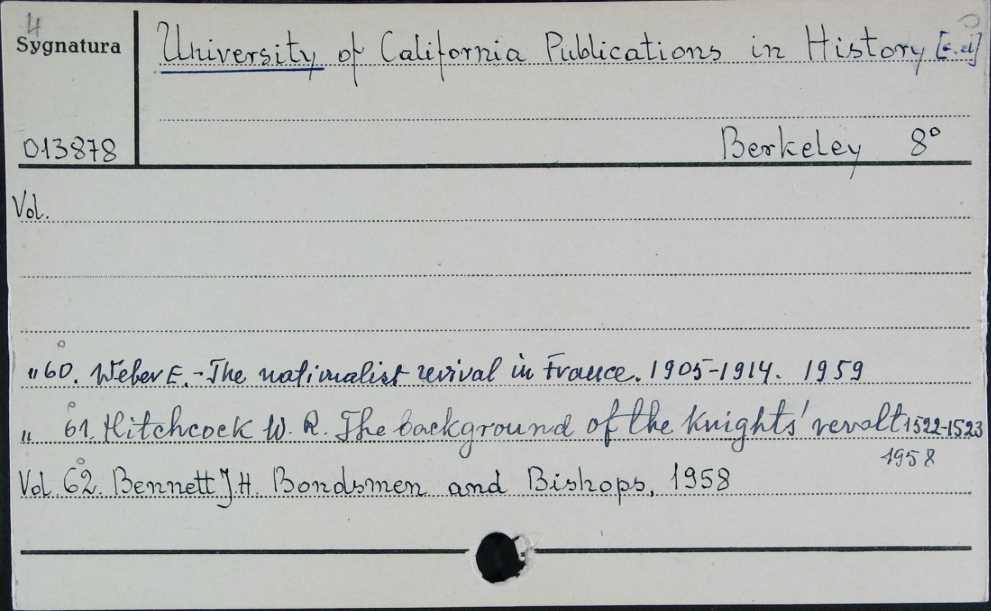 4
Sygnatura
University of California Publications in History [c.d]
013878
Berkeley 8°
Vol.
" 60. Weber E. - The nationalist revival in France. 1905-1914. 1959
" 61. Hitchcock W. R. The background of the Knights' revolt 1522-1523
1958
Vol. 62. Bennett J.H. Bondsmen and Bishops, 1958